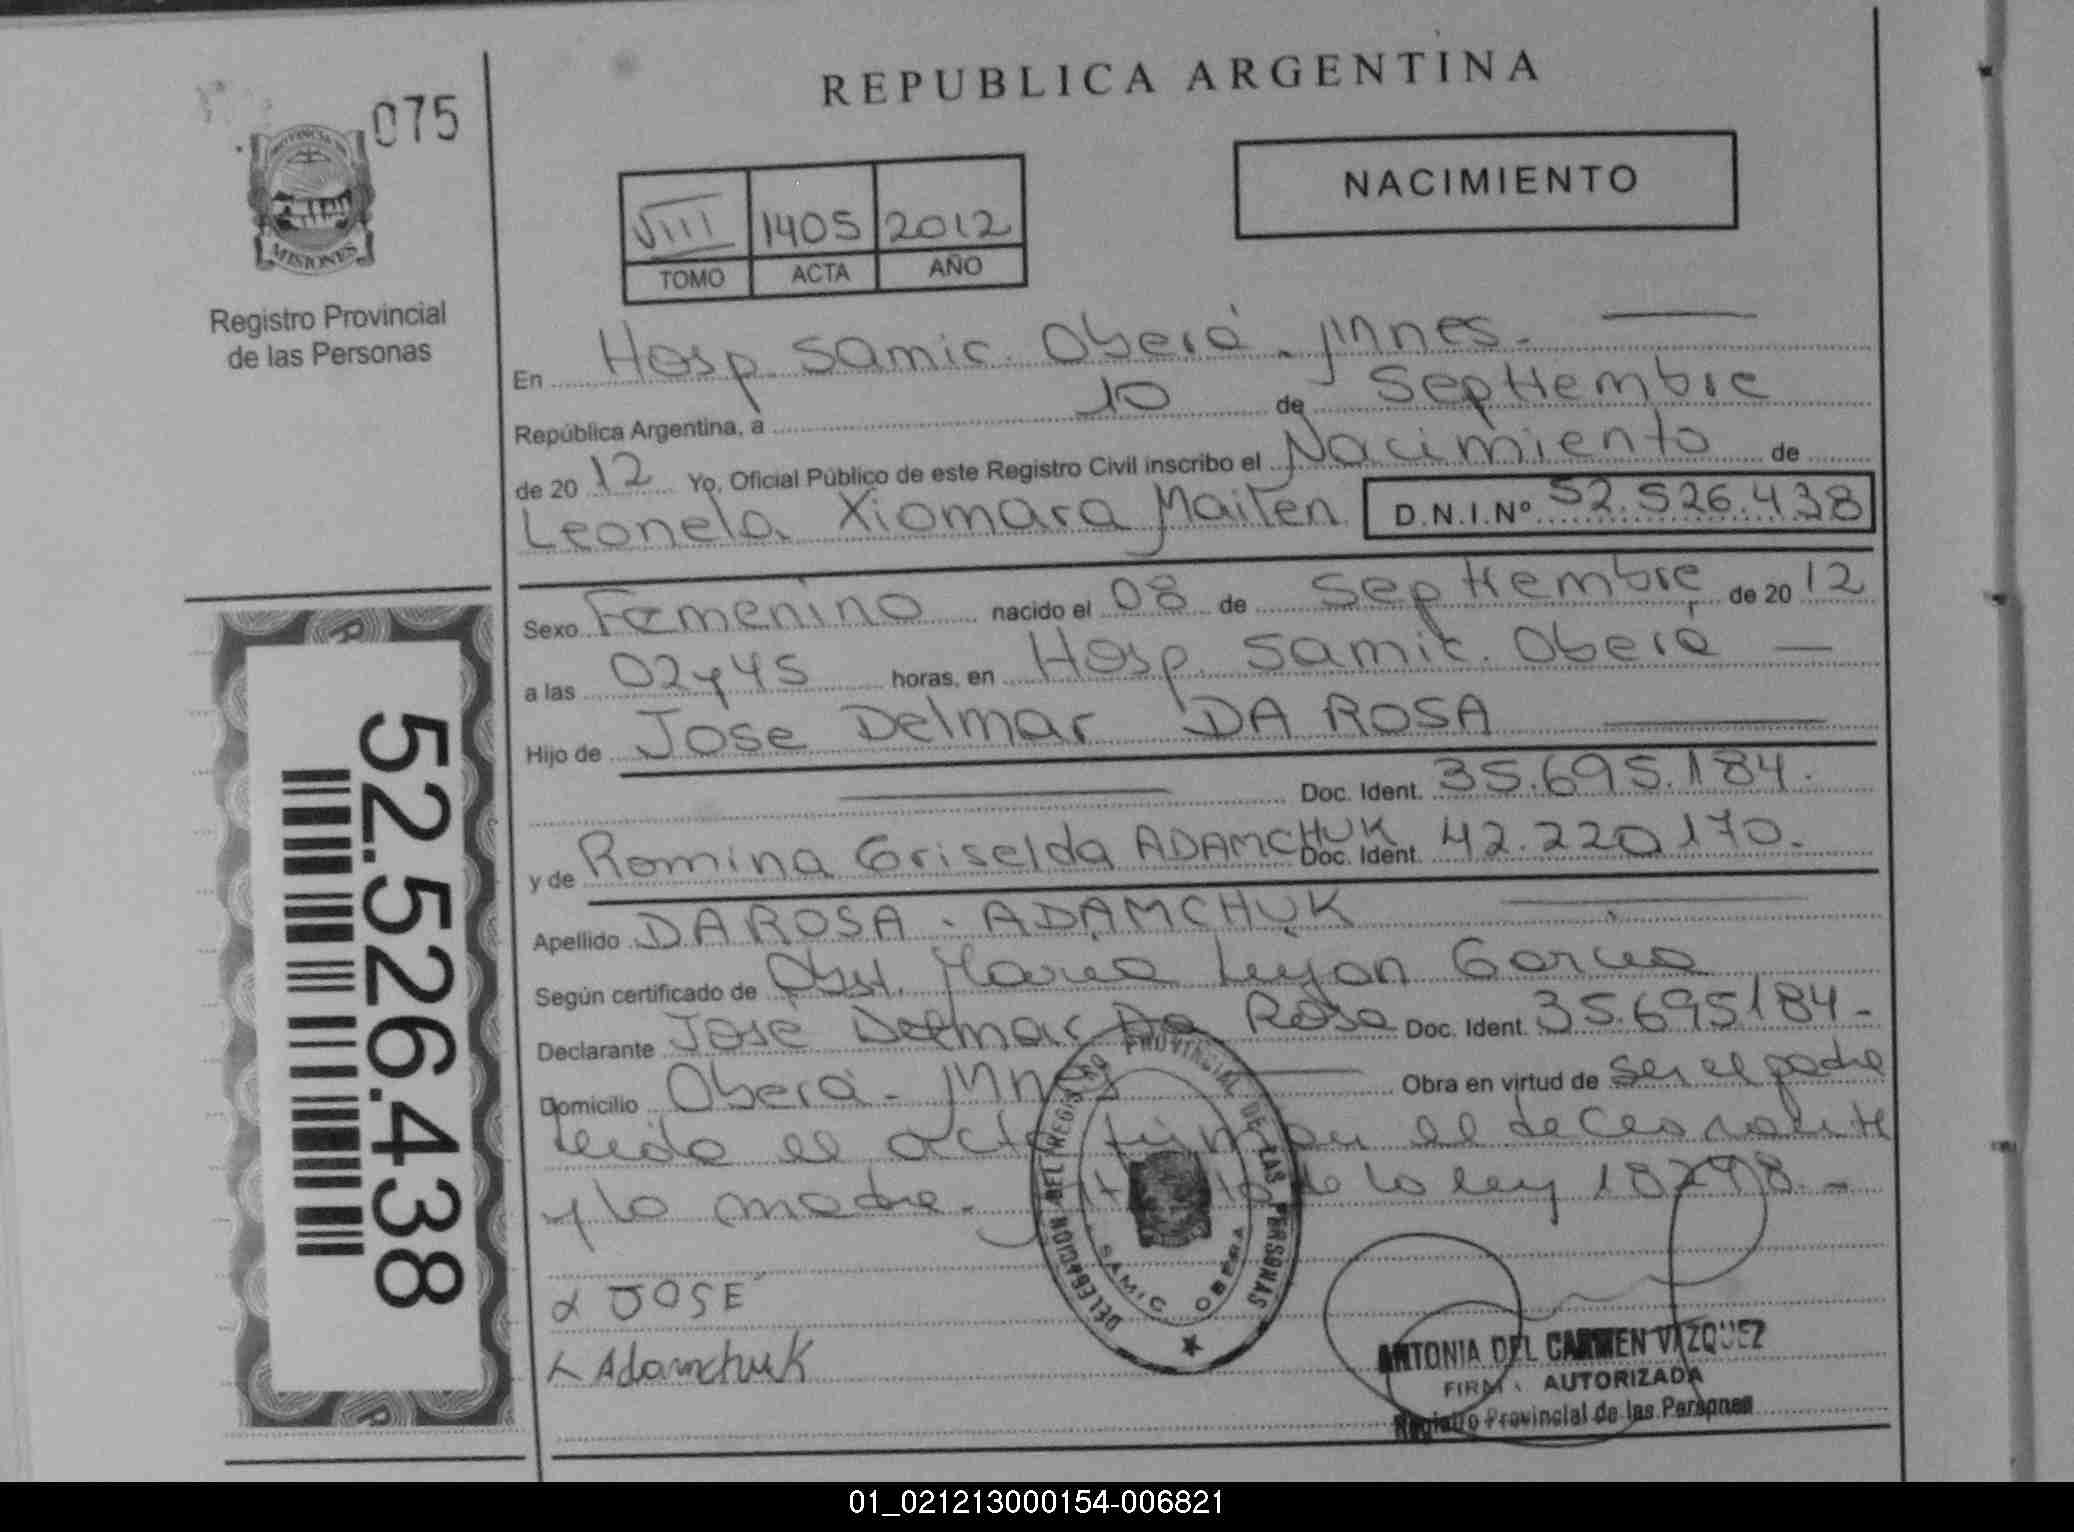 REPUBLICA ARGENTINA
075
PROVINCIA DE
MISIONES
Registro Provincial
de las Personas
NACIMIENTO
VIII 1405 2012
TOMO ACTA AÑO
En Hosp. Samic. Oberá - Mnes.
República Argentina, a 10 de Septiembre
de 2012 Yo, Oficial Público de este Registro Civil inscribo el Nacimiento de
Leonela Xiomara Maiten D.N.I.Nº 52.526.438
Sexo Femenino nacido el 08 de Septiembre de 2012
a las 02y45 horas, en Hosp. Samic. Oberá
Hijo de Jose Delmar DA ROSA
Doc. Ident. 35.695.184.
y de Romina Griselda ADAMCHUK Doc. Ident. 42.220170.
Apellido DA ROSA - ADAMCHUK
Según certificado de Obst. Maria Lujan Garcia
Declarante José Delmar Da Rosa Doc. Ident. 35.695184-
Domicilio Oberá - Mnes Obra en virtud de ser el padre
Leida el acta firman el declarante
y la madre. de la ley 18248.-
DELEGACION DEL REGISTRO PROVINCIAL DE LAS PERSONAS
SAMIC OBERA
JOSE
Adamchuk
ANTONIA DEL CARMEN VAZQUEZ
FIRMA AUTORIZADA
Registro Provincial de las Personas
52.526.438
01_021213000154-006821